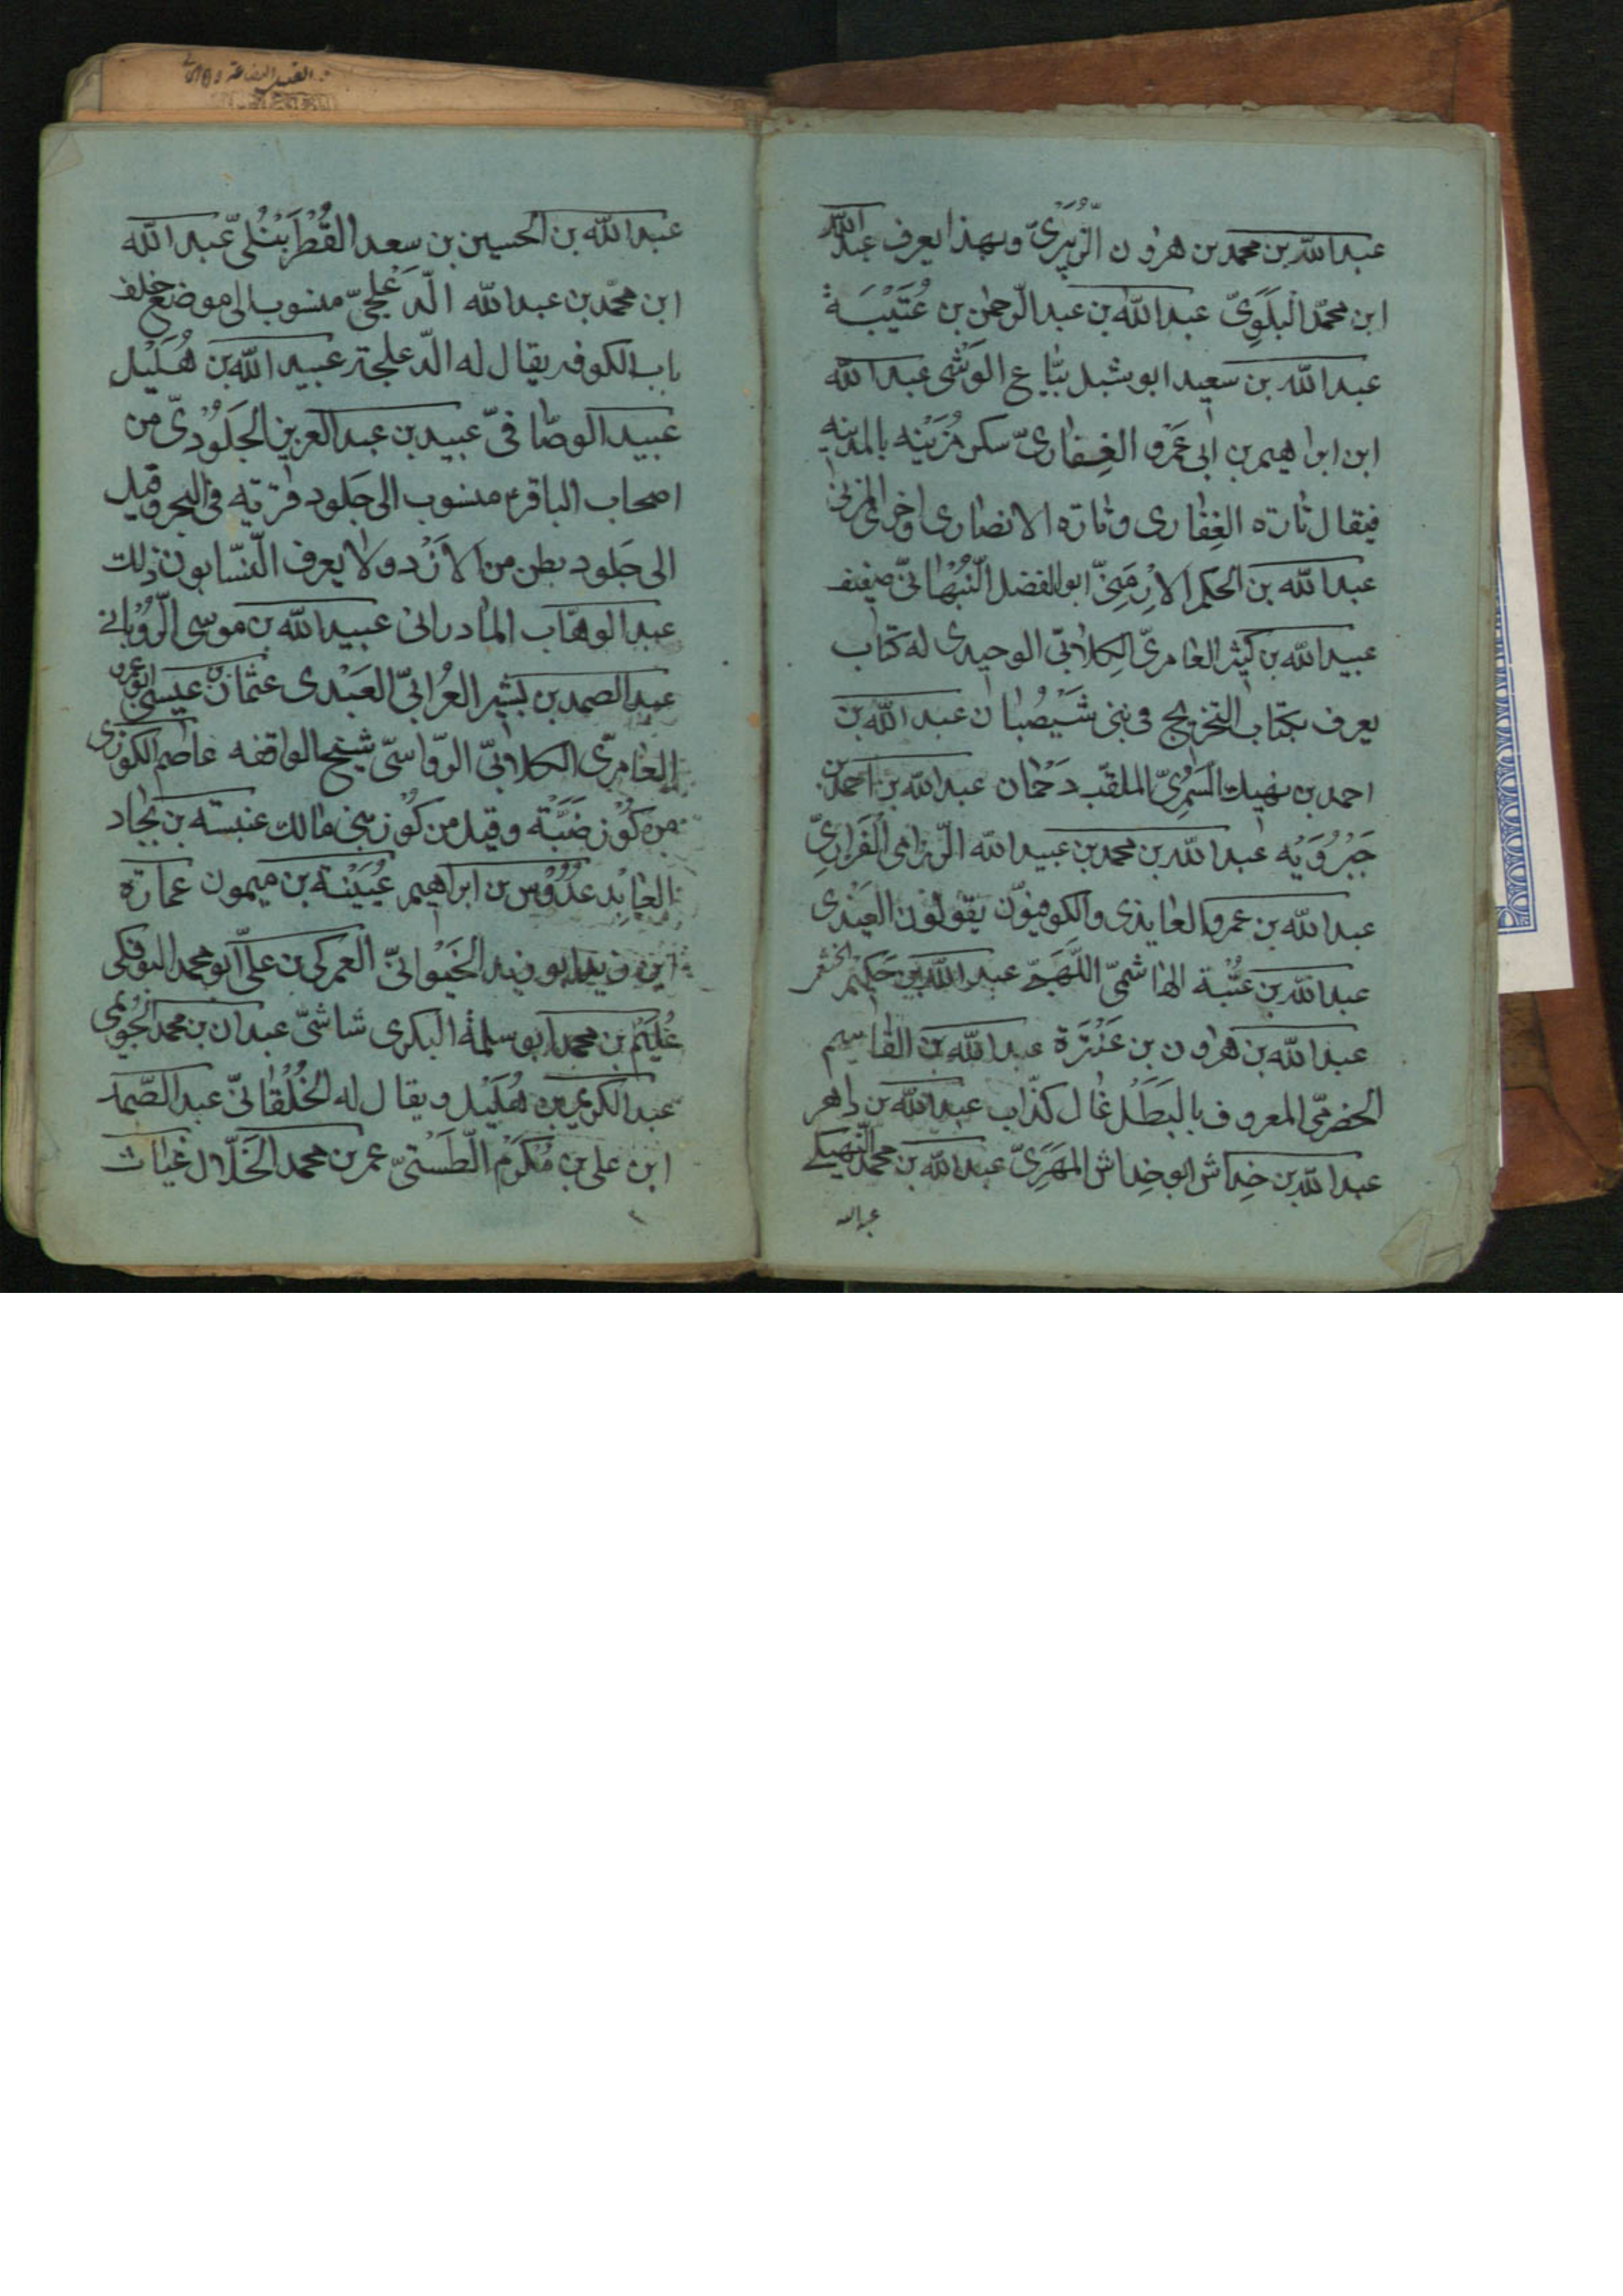 عبدالله بن محمد بن هرون الزُّبَيْرِيّ وبهذا يعرف عبدالله
ابن محمّد البَلَوِيّ عبدالله بن عبدالرّحمٰن بن عُتَيْبَة
عبدالله بن سعيد ابوشبل بيّاع الوَشْى عبدالله
ابن ابراهيم بن ابى عَمْرو الغِفاريّ سكن مُزَيْنه بالمدينه
فيقال تارة الغِفارى وتارة الانصارى واخرى المزنى
عبدالله بن الحكم الارْمَنِيّ ابوالفضل النَّبْهانىّ ضعيف
عبيدالله بن كثير العامرىّ الكلابىّ الوحيدى له كتاب
يعرف بكتاب التخريج فى بنى شَيْصُبان عبدالله بن
احمد بن نهيك السَمُرِىّ الملقّب دَحْمان عبدالله بن احمد بن
جَبْرُوَيْه عبدالله بن محمد بن عبيدالله الرّزامى الفَزارِىّ
عبدالله بن عمرو العايذى والكوفيّون يقولون العَيْذى
عبدالله بن عُتْبة الهاشمىّ اللَّهَبِىّ عبدالله بن حَكِيْم
عبدالله بن هرون بن عَنْتَرَة عبدالله بن القاسم
الحضرمىّ المعروف بالبَطَل غال كذّاب عبدالله بن داهر
عبدالله بن خِداش ابوخِداش المَهْرِىّ عبدالله بن محمد النَّهيكى
عبدالله
عبدالله بن الحسين بن سعد القُطْرَبُّلىّ عبدالله
ابن محمّد بن عبدالله الدَّعْلَجىّ منسوب الى موضع خلف
باب الكوفه يقال له الدّعلجة عبيدالله بن هُلَيْل
عبيد الوصّافىّ عبيد بن عبدالعزيز الجَلُودىّ من
اصحاب الباقرء منسوب الى جَلود قرية فى البحر وقيل
الى جَلود بطن من الأزْد ولا يعرف النسّابون ذلك
عبدالوهّاب المادرانى عبيدالله بن موسى الرُّويانى
عبدالصمد بن بشير العُرامىّ العَبْدى عثمان بن عيسى ابوعمرو
العامرىّ الكلابىّ الرّواسىّ شيخ الواقفه عاصم الكوزى
من كُوْز ضَبَّة وقيل من كُوْز بنى مالك عنبسة بن بجاد
العابد عُدُّوْس بن ابراهيم عُيَيْنة بن ميمون عمارة
ابن زيد ابو زيد الخَيْوانىّ العمركى بن علىّ ابومحمد البوفكى
عُلَيْم بن محمد ابوسلمة البكرى شاشىّ عبدان بن محمد الجُوَيْمى
عبدالكريم بن هُلَيْل ويقال له الخُلْقانىّ عبدالصّمد
ابن على بن مُكْرَم الطَّسْتىّ عمر بن محمد الخَلّال غياث